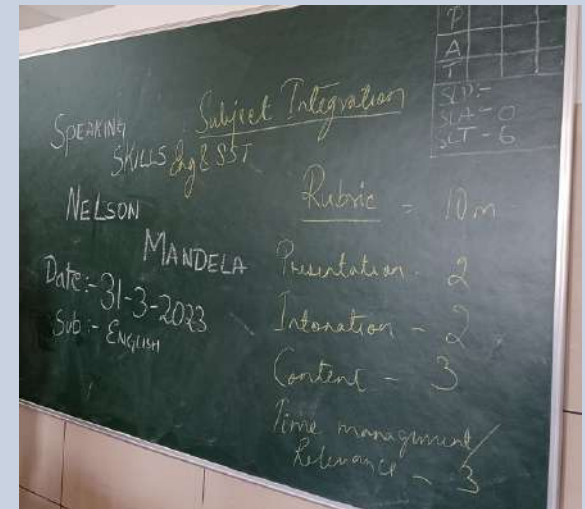 Subject Integration
SPEAKING
SKILLS Eng & SST
NELSON
MANDELA
Date:- 31-3-2023
Sub:- ENGLISH
Rubric = 10m
Presentation - 2
Intonation - 2
Content - 3
Time management/
Relevance - 3
P
A
T
SLP:-
SLA - 0
SLT - 6